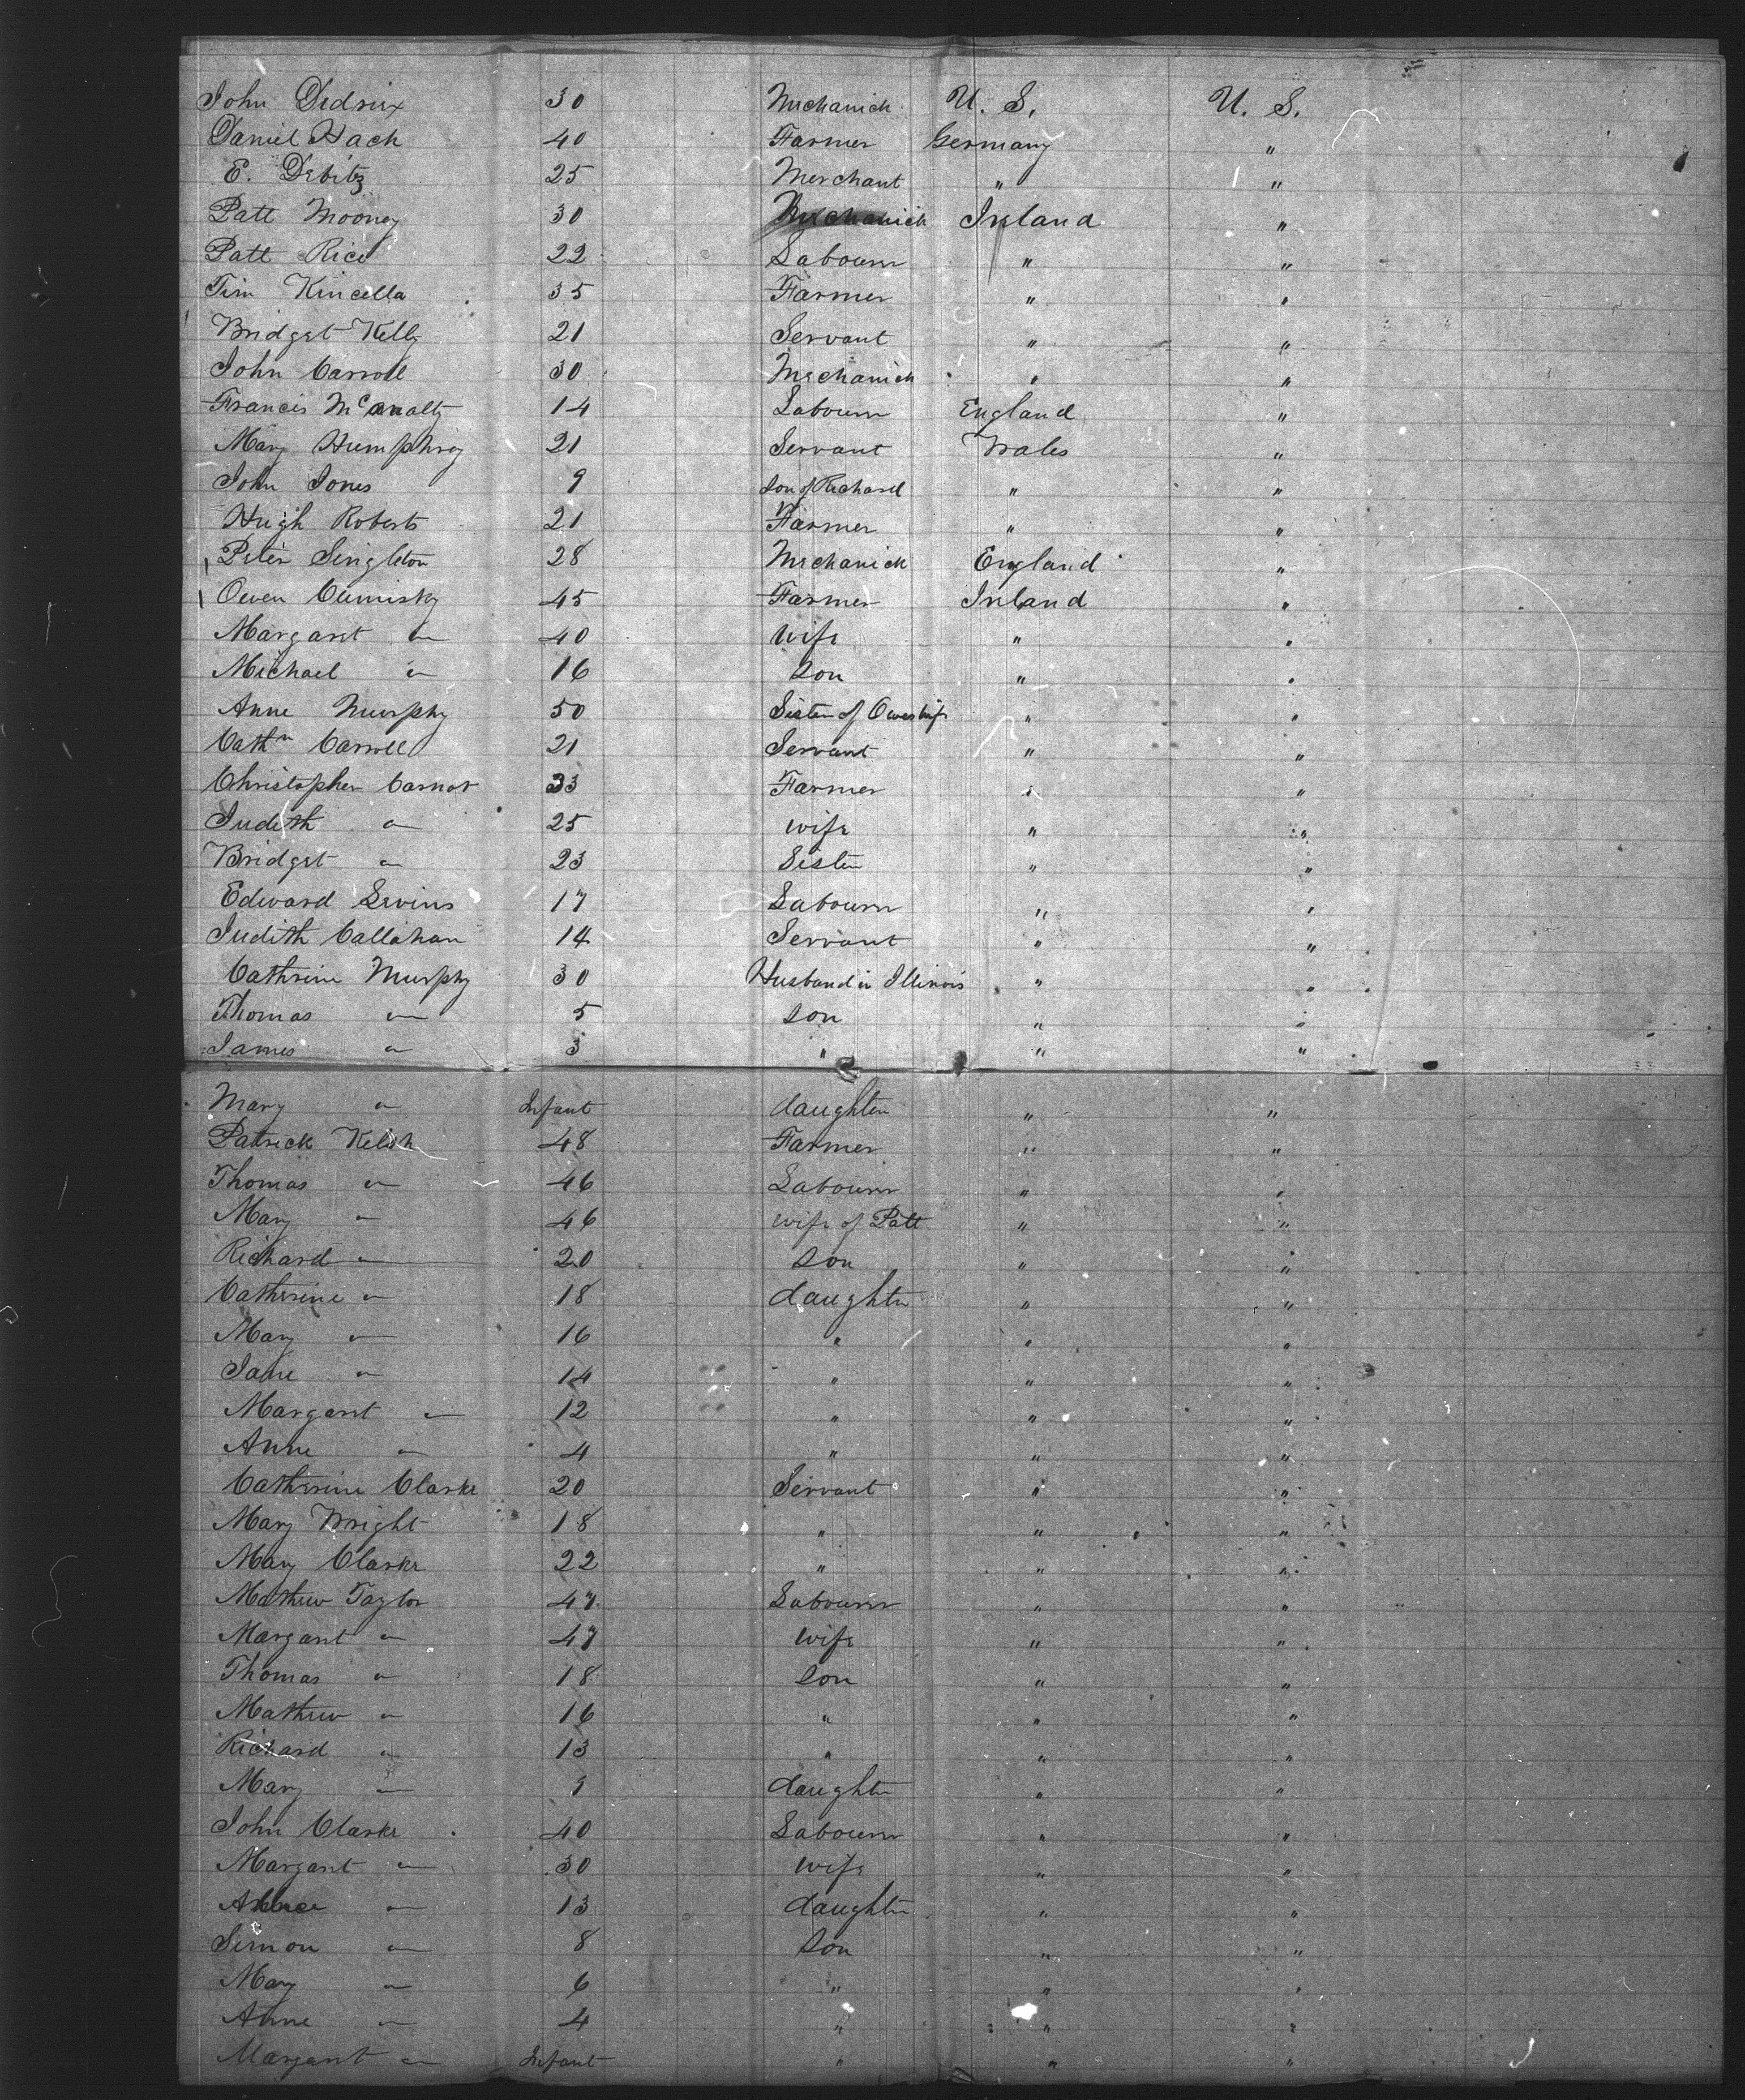 John Didrix 30 Mechanick U. S. U. S.
Daniel Hach 40 Farmer Germany "
E. Debitz 25 Merchant " "
Patt Mooney 30 Mechanick Ireland "
Patt Rice 22 Labourer " "
Tim Kincella 35 Farmer " "
Bridget Kelly 21 Servant " "
John Carroll 30 Mechanick " "
Francis McAnalty 14 Labourer England "
Mary Humphrey 21 Servant Wales "
John Jones 9 Son of Richard " "
Hugh Roberts 21 Farmer " "
Peter Singleton 28 Mechanick England "
Owen Cumisky 45 Farmer Ireland "
Margaret " 40 Wife " "
Michael " 16 Son " "
Anne Murphy 50 Sister of Owes wife " "
Cathn Carroll 21 Servant " "
Christopher Carnot 33 Farmer " "
Judith " 25 wife " "
Bridget " 23 Sister " "
Edward Levins 17 Labourer " "
Judith Callahan 14 Servant " "
Cathrine Murphy 30 Husband in Illinois " "
Thomas " 5 Son " "
James " 3 " " "
Mary " Infant daughter " "
Patrick Kelsh 48 Farmer " "
Thomas " 46 Labourer " "
Mary " 46 wife of Patt " "
Richard " 20 Son " "
Catherine " 18 daughter " "
Mary " 16 " " "
Jane " 14 " " "
Margaret " 12 " " "
Anne " 4 " " "
Catherine Clarke 20 Servant " "
Mary Wright 18 " " "
Mary Clarke 22 " " "
Mathew Taylor 47 Labourer " "
Margaret " 47 wife " "
Thomas " 18 Son " "
Mathew " 16 " " "
Richard " 13 " " "
Mary " 9 daughter " "
John Clarke 40 Labourer " "
Margaret " 30 wife " "
" 13 daughter " "
Simon " 8 Son " "
Mary " 6 " " "
Anne " 4 " " "
Margaret " Infant " " "